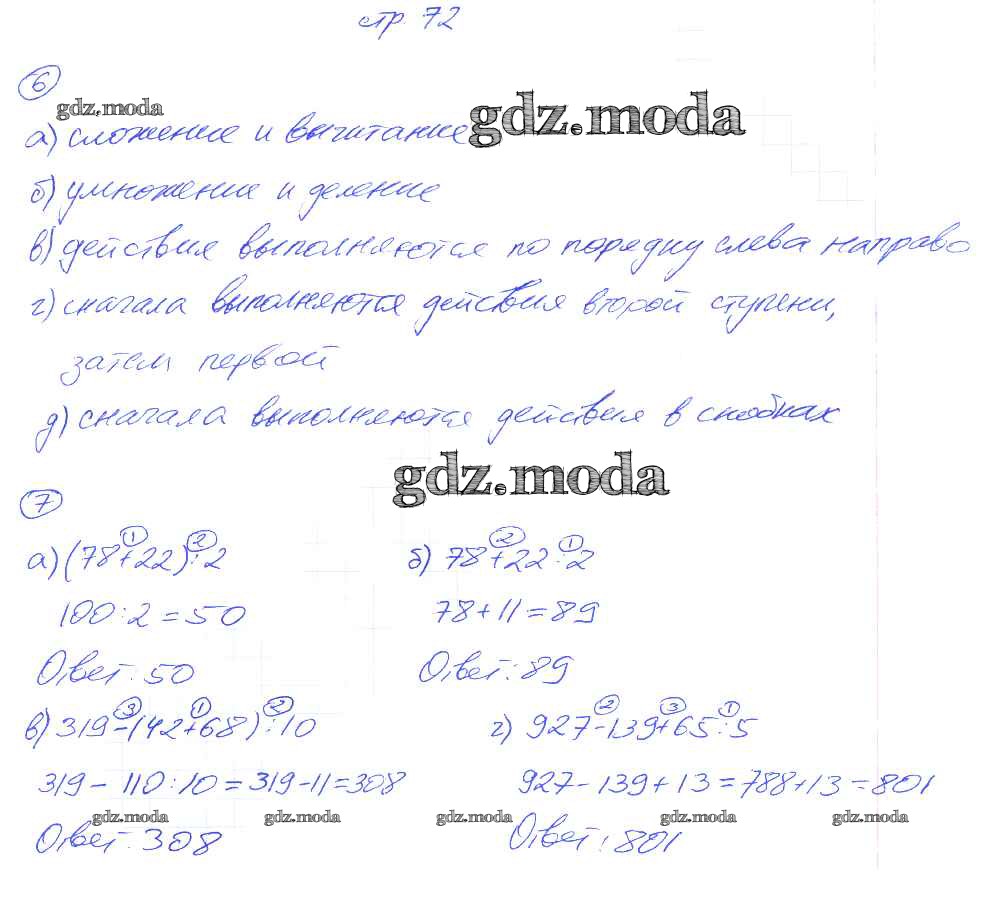 стр. 72
6
gdz.moda
gdz.moda
а) сложение и вычитание
б) умножение и деление
в) действия выполняются по порядку слева направо
г) сначала выполняются действия второй ступени,
затем первой
д) сначала выполняются действия в скобках
gdz.moda
7
1 2
а) (78+22):2
100:2=50
Ответ: 50
2 1
б) 78+22:2
78+11=89
Ответ: 89
3 1 2
в) 319-(42+68):10
319-110:10=319-11=308
Ответ: 308
2 3 1
г) 927-139+65:5
927-139+13=788+13=801
Ответ: 801
gdz.moda gdz.moda gdz.moda gdz.moda gdz.moda